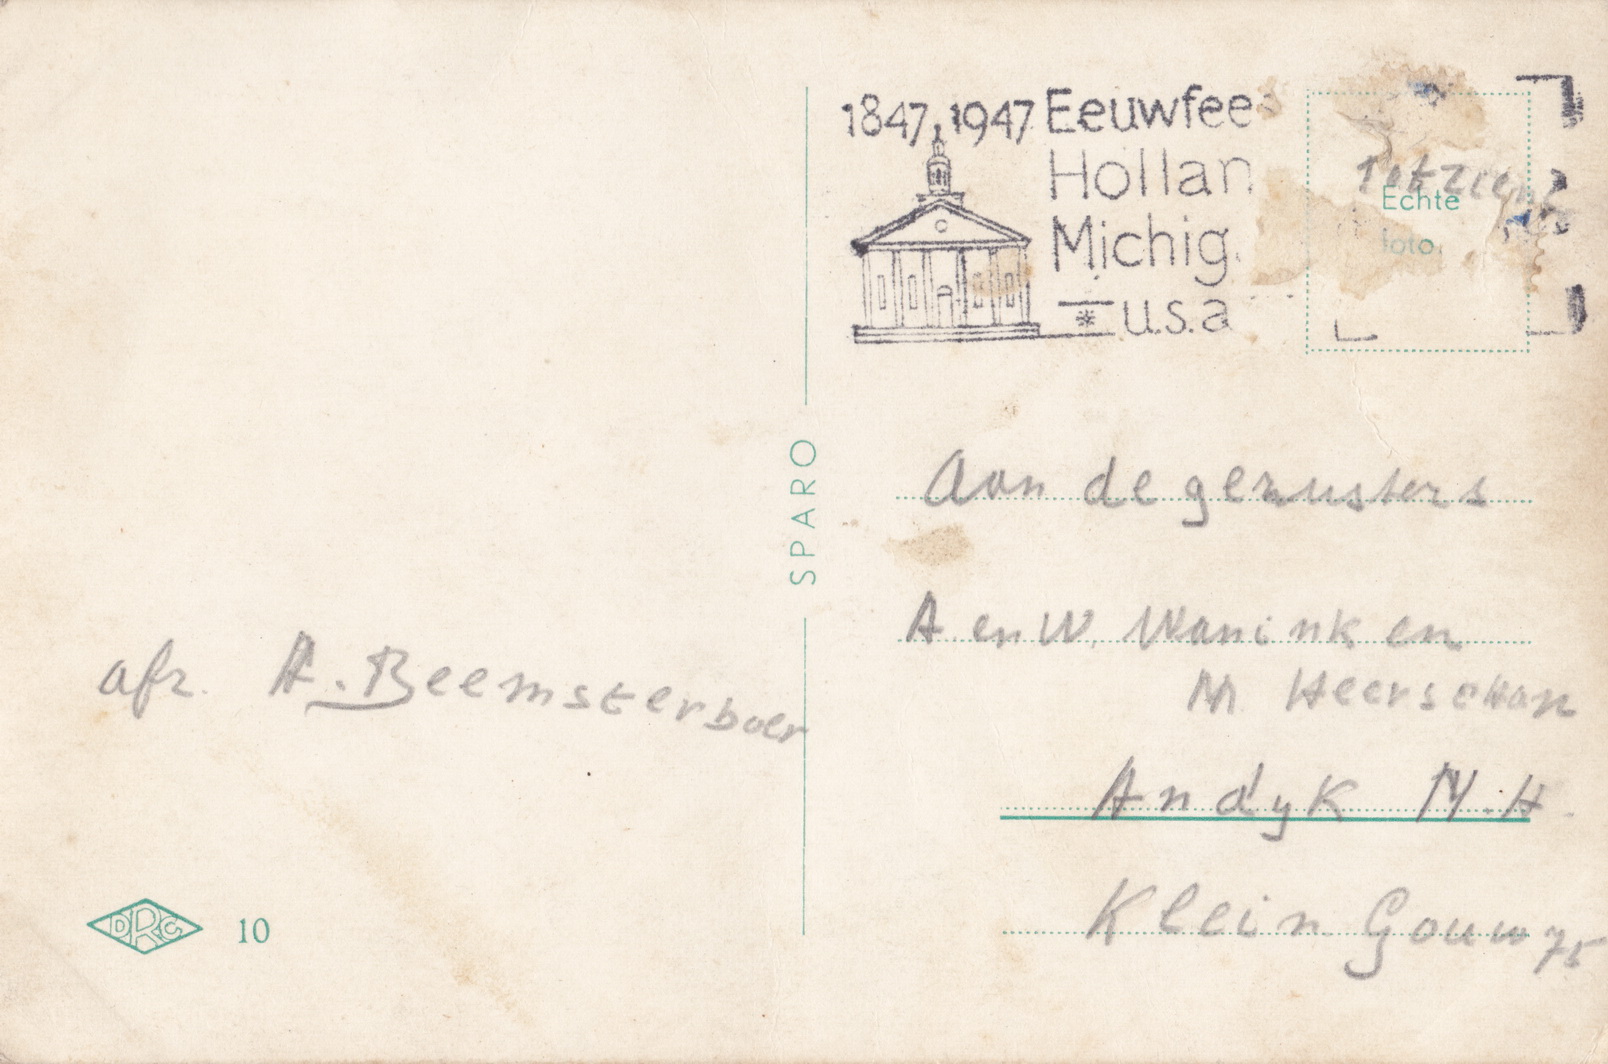 1847 1947 Eeuwfee
Hollan
Michig
u.s.a
Tot Ziens
Echte
foto
SPARO
Aan de gezusters
A en W. Wanink en
M Heerschan
Andyk N.H.
Klein Gouw 75
afz. A. Beemsterboer
DRC 10